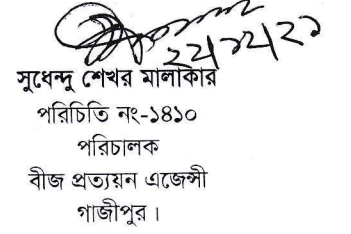 ২২/১২/২১
সুধেন্দু শেখর মালাকার
পরিচিতি নং-১৪১০
পরিচালক
বীজ প্রত্যয়ন এজেন্সী
গাজীপুর।